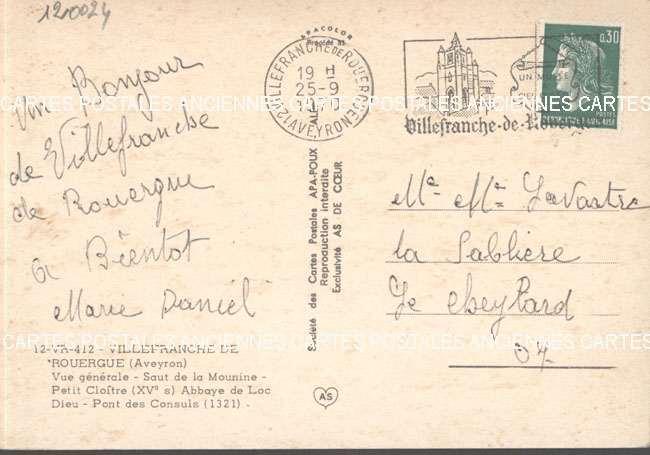 120024
un Bonjour
de Villefranche
de Rouergue
a Bientot
Marie Daniel
12-VR-412 - VILLEFRANCHE DE
ROUERGUE (Aveyron)
Vue générale - Saut de la Mounine -
Petit Cloître (XVe s) Abbaye de Loc
Dieu - Pont des Consuls (1321)
APACOLOR
Procédé
Société des Cartes Postales APA-POUX
Reproduction interdite
Exclusivité AS DE CŒUR
AS
VILLEFRANCHE DE ROUERGUE
19 H
25-9
AVEYRON
UN
Villefranche-de-Rouergue
0,30
POSTES
REPUBLIQUE FRANÇAISE
Me Me
la Sabliere
Le Cheylard
07
CARTES POSTALES ANCIENNES CARTES POSTALES ANCIENNES CARTES
CARTES POSTALES ANCIENNES CARTES POSTALES ANCIENNES CARTES